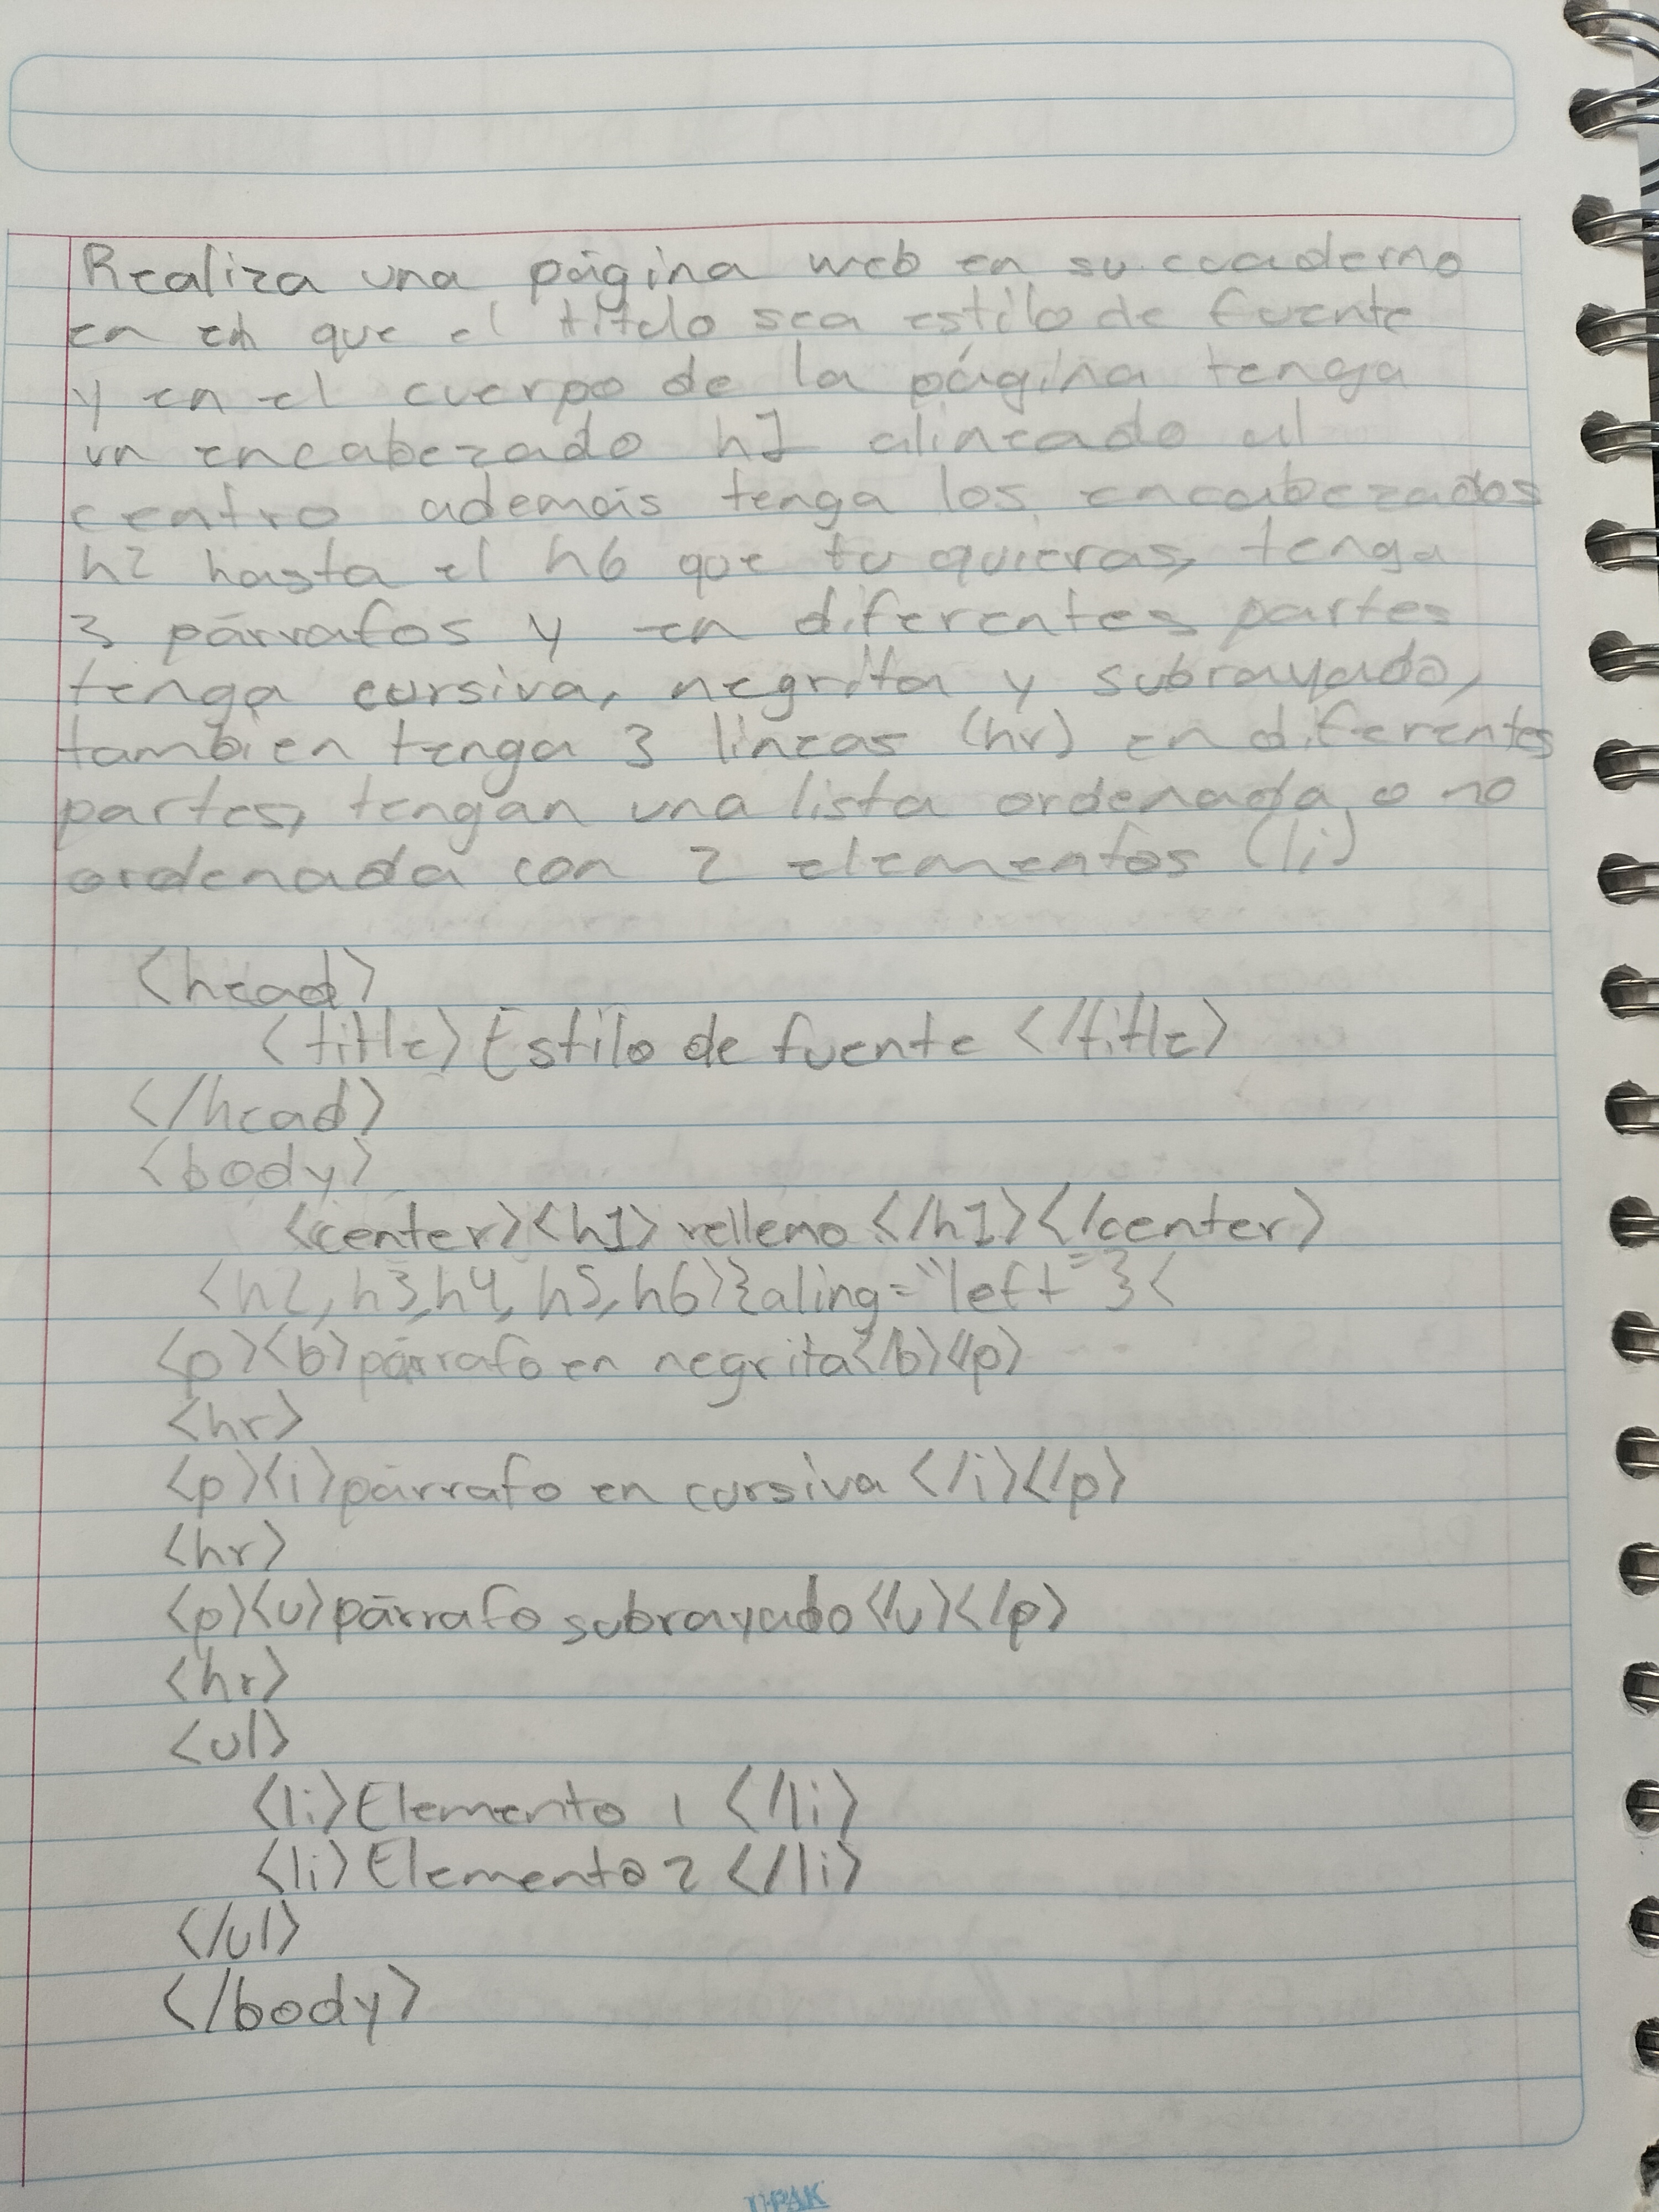 Realiza una página web en su cuaderno
en en que el titulo sea estilo de fuente
y en el cuerpo de la página tenga
un encabezado h1 alineado al
centro además tenga los encabezados
h2 hasta el h6 que tu quieras, tenga
3 párrafos y en diferentes partes
tenga cursiva, negrita y subrayado,
tambien tenga 3 lineas (hr) en diferentes
partes, tengan una lista ordenada o no
ordenada con 2 elementos (li)
<head>
<title>Estilo de fuente </title>
</head>
<body>
<center><h1>relleno</h1></center>
<h2, h3, h4, h5, h6>}{aling="left"}<
<p><b>párrafo en negrita</b></p>
<hr>
<p><i>párrafo en cursiva </i></p>
<hr>
<p><u>párrafo subrayado</u></p>
<hr>
<ul>
<li>Elemento 1 </li>
<li>Elemento 2 </li>
</ul>
</body>
U·PAK